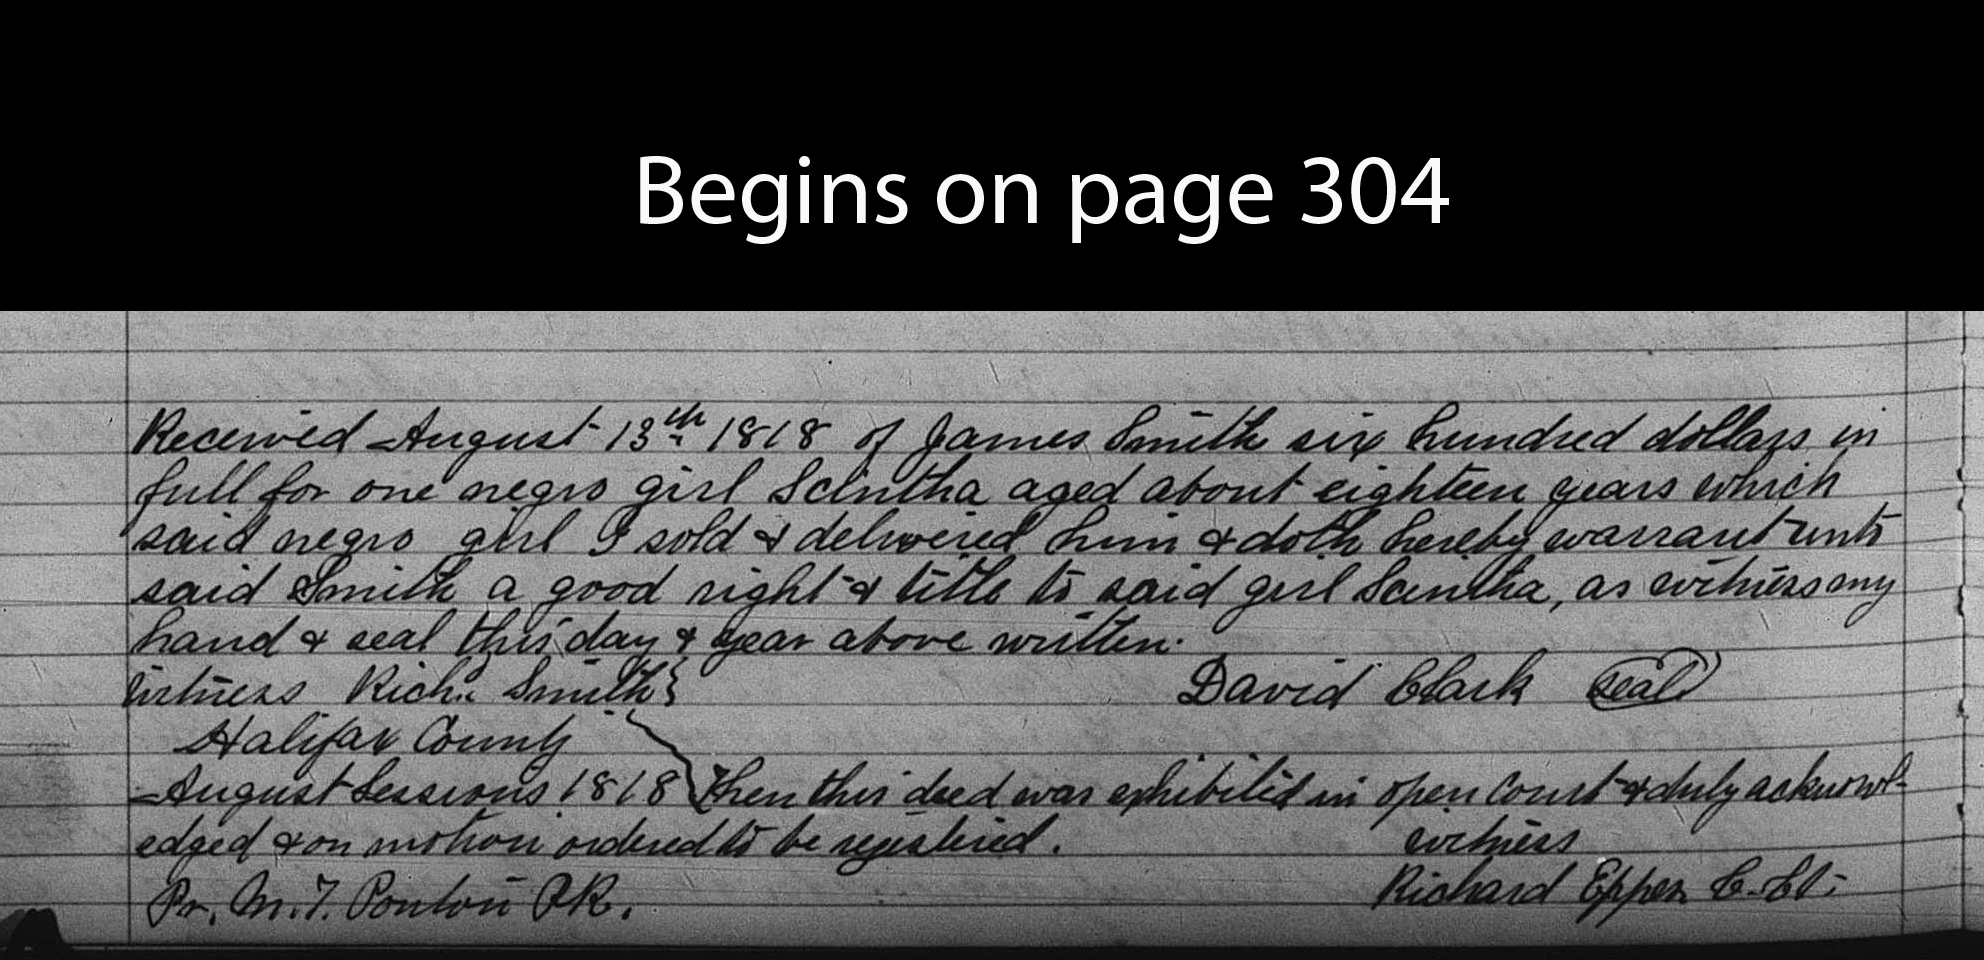 Begins on page 304
Received August 13th 1818 of James Smith six hundred dollars in
full for one negro girl Scintha aged about eighteen years which
said negro girl I sold & delivered him & doth hereby warrant unto
said Smith a good right & title to said girl Scintha, as witness my
hand & seal this day & year above written.
Witness Richd. Smith} David Clark seal
Halifax County
August Sessions 1818 } Then this deed was exhibited in open Court & duly acknowl-
edged & on motion ordered to be registered. witness
Pr. M. T. Ponton P.R. Richard Eppes C. Ct.